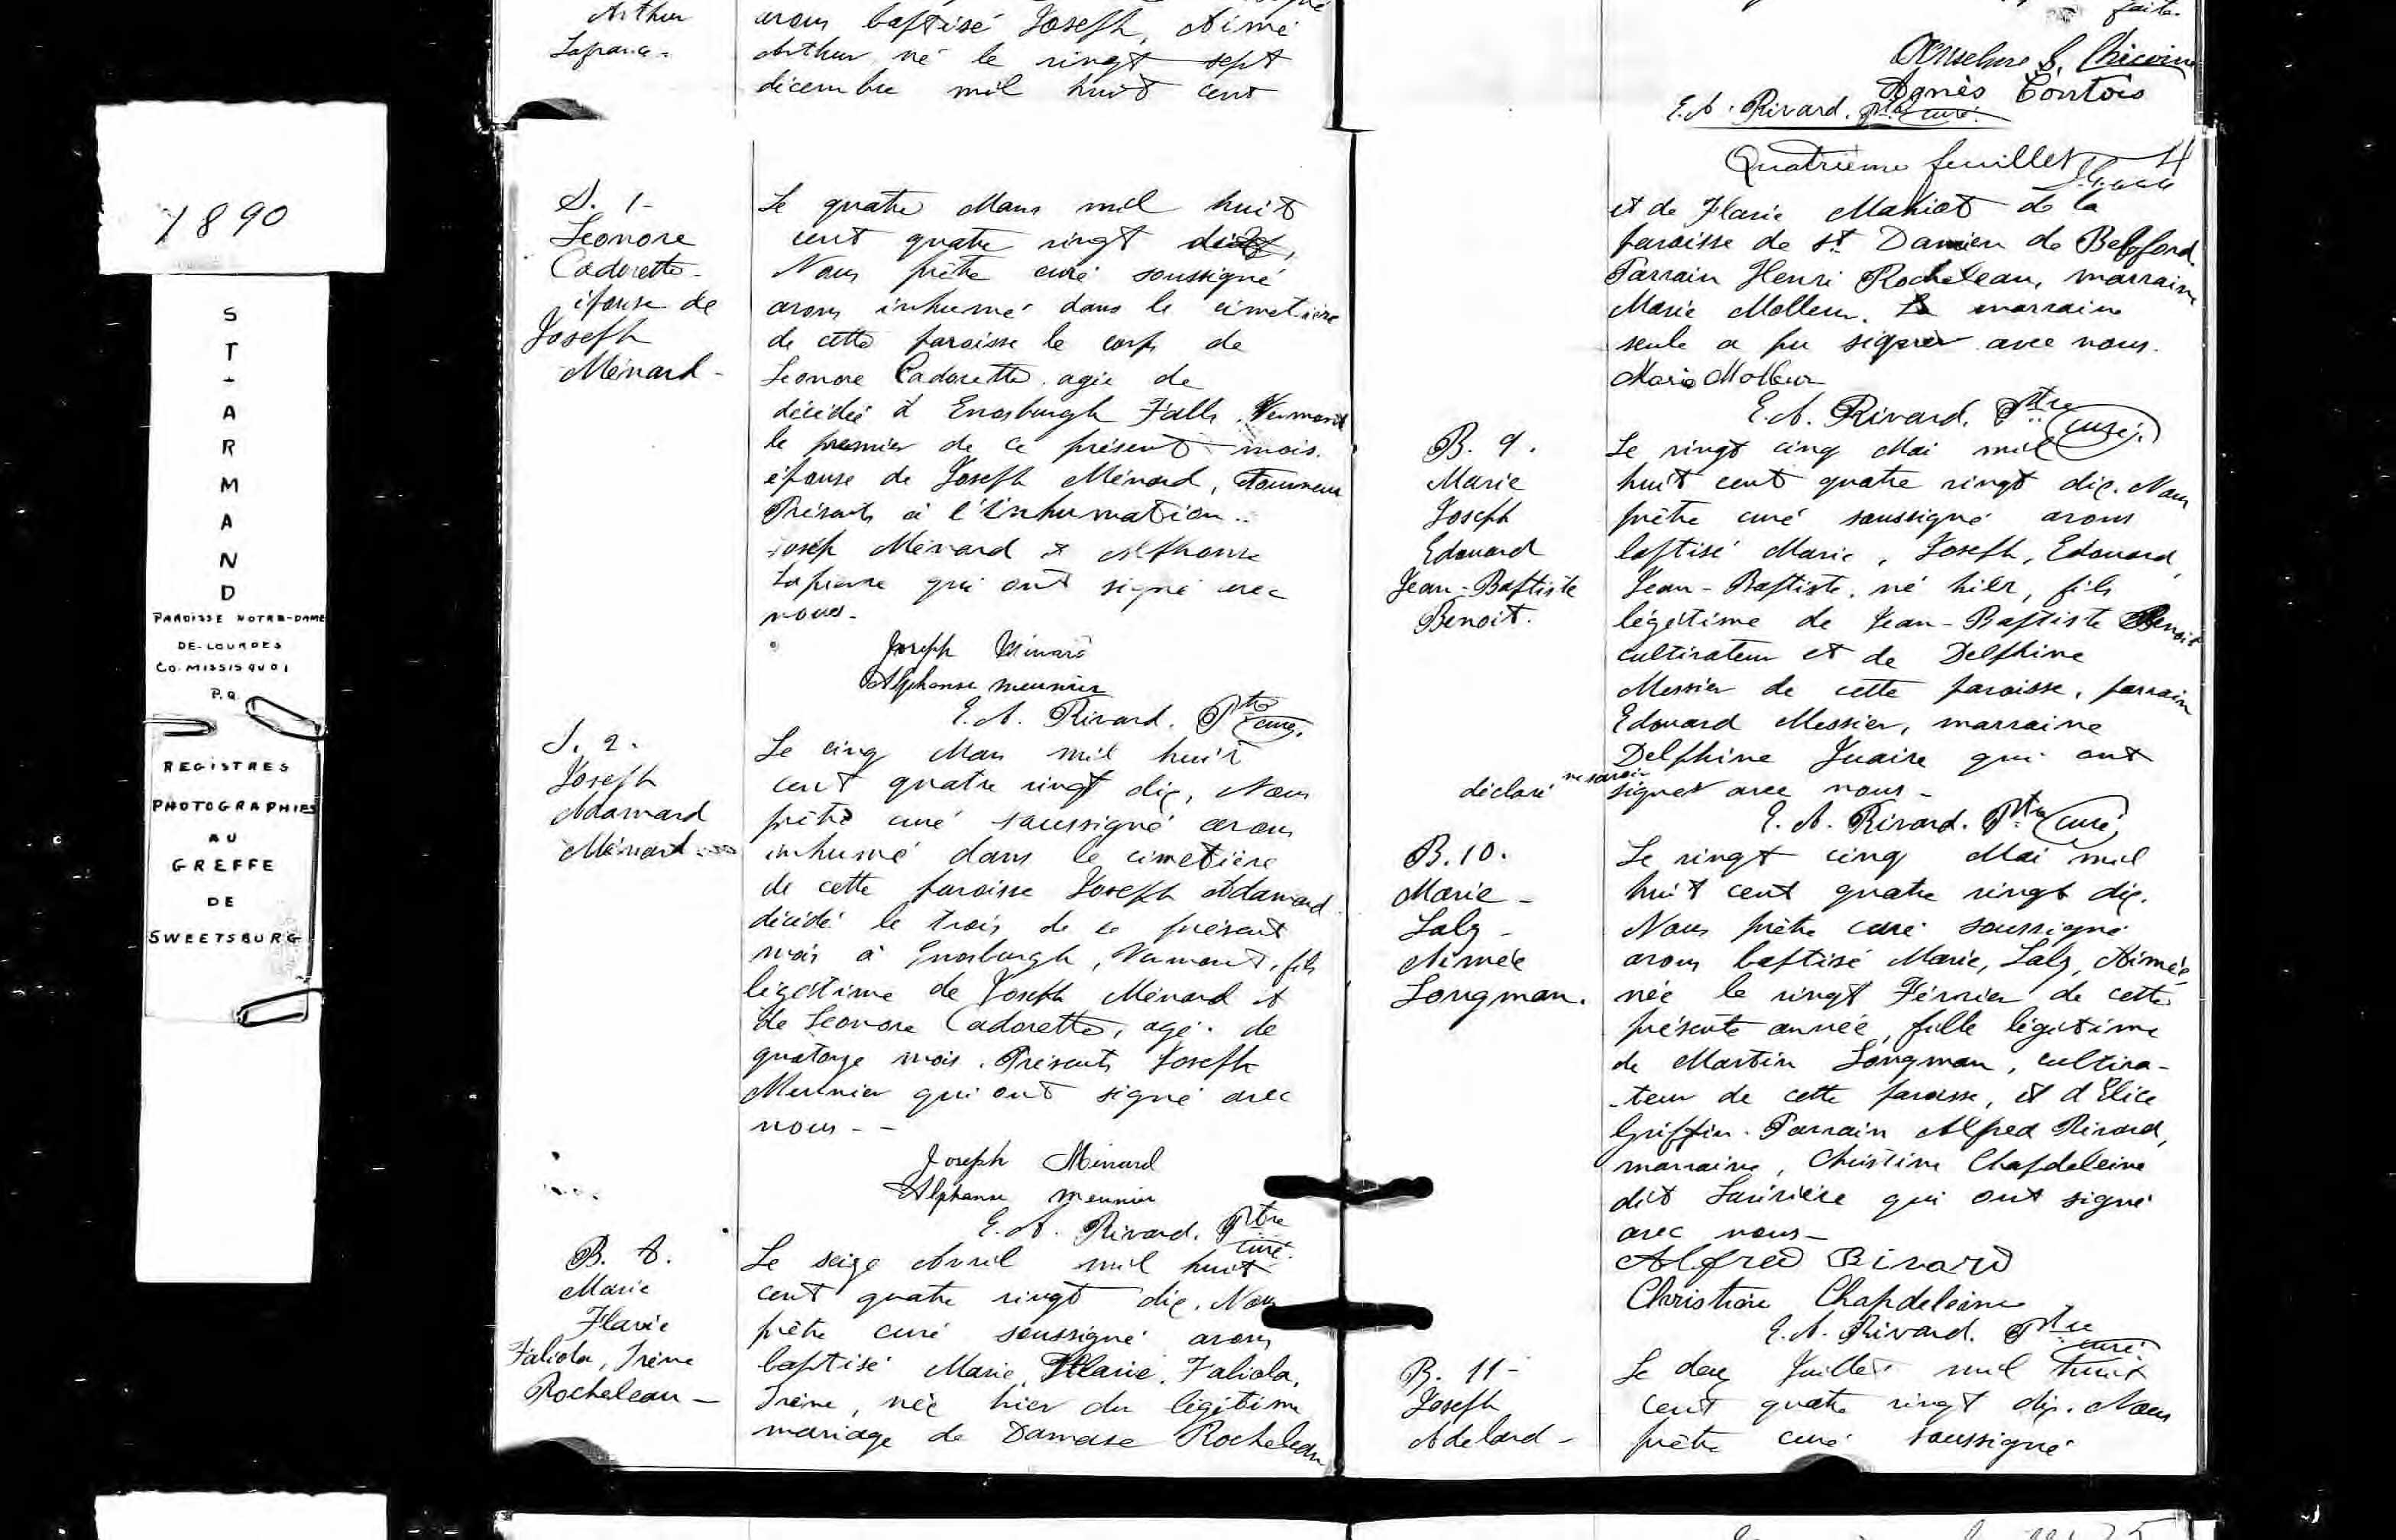 1890
ST-ARMAND
PAROISSE NOTRE-DAME
DE-LOURDES
CO. MISSISQUOI
P.Q.
REGISTRES
PHOTOGRAPHIES
AU
GREFFE
DE
SWEETSBURG
Arthur
avons baptisé Joseph, Aimé
Arthur né le vingt sept
décembre mil huit cent
S. 1-
Leonore
Cadorette-
épouse de
Joseph
Ménard-
Le quatre Mars mil huit
cent quatre vingt dix,
Nous prêtre curé soussigné
avons inhumé dans le cimetière
de cette paroisse le corps de
Leonore Cadorette. agée de
décédée à Enosburgh Falls. Vermont
le premier de ce présent mois.
épouse de Joseph Ménard,
Présents à l'inhumation..
Josep Ménard &
qui ont signé avec
nous-
Joseph Ménard
Alphonse meunier
E. A. Rivard. Ptre curé.
S. 2.
Joseph
Adamard
Ménard
Le cinq Mars mil huit
cent quatre vingt dix, Nous
prêtre curé soussigné avons
inhumé dans le cimetière
de cette paroisse Joseph Adamard
décédé le trois de ce présent
mois à Enosburgh, Vermont, fils
légitime de Joseph Ménard et
de Leonore Cadorette, agé. de
quatorze mois. Présents Joseph
Meunier qui ont signé avec
nous--
Joseph Ménard
Alphonse meunier
E. A. Rivard. Ptre curé.
B. 8.
Marie
Flavie
Faliola, Irène
Rocheleau-
Le seize Avril mil huit
cent quatre vingt dix. Nous
prêtre curé soussigné avons
baptisé Marie, Flavie. Faliola,
Irène, née hier du légitime
mariage de Damase Rocheleau
faite.
Agnès
E. A. Rivard. Ptre curé.
Quatrième feuillet 4
et de Flavie Mahiot de la
paroisse de St Damien de Bedford.
Parrain Henri Rocheleau, marraine
Marie Molleur. La marraine
seule a pu signer avec nous.
Marie Molleur
E. A. Rivard. Ptre curé.
B. 9.
Marie
Joseph
Edouard
Jean-Baptiste
Benoit.
Le vingt cinq Mai mil
huit cent quatre vingt dix. Nous
prêtre curé soussigné avons
baptisé Marie, Joseph, Edouard,
Jean-Baptiste. né hier, fils
légitime de Jean-Baptiste Benoit
cultivateur et de Delphine
Messier de cette paroisse, parrain
Edouard Messier, marraine
Delphine Juaire qui ont
déclaré ne savoir signer avec nous-
E. A. Rivard. Ptre curé
B. 10.
Marie-
Laly-
Aimée
Longman.
Le vingt cinq Mai mil
huit cent quatre vingt dix.
Nous prêtre curé soussigné
avons baptisé Marie, Laly, Aimée
née le vingt Février de cette
présente année, fille légitime
de Martin Longman, cultiva-
-teur de cette paroisse, et d'Elice
Griffin. Parrain Alfred Rivard,
marraine, Christine Chapdeleine
dit Larivière qui ont signé
avec nous-
Alfred Rivard
Christine Chapdeleine
E. A. Rivard. Ptre curé.
B. 11-
Joseph
Adelard-
Le deux Juillet mil huit
cent quatre vingt dix. Nous
prêtre curé soussigné